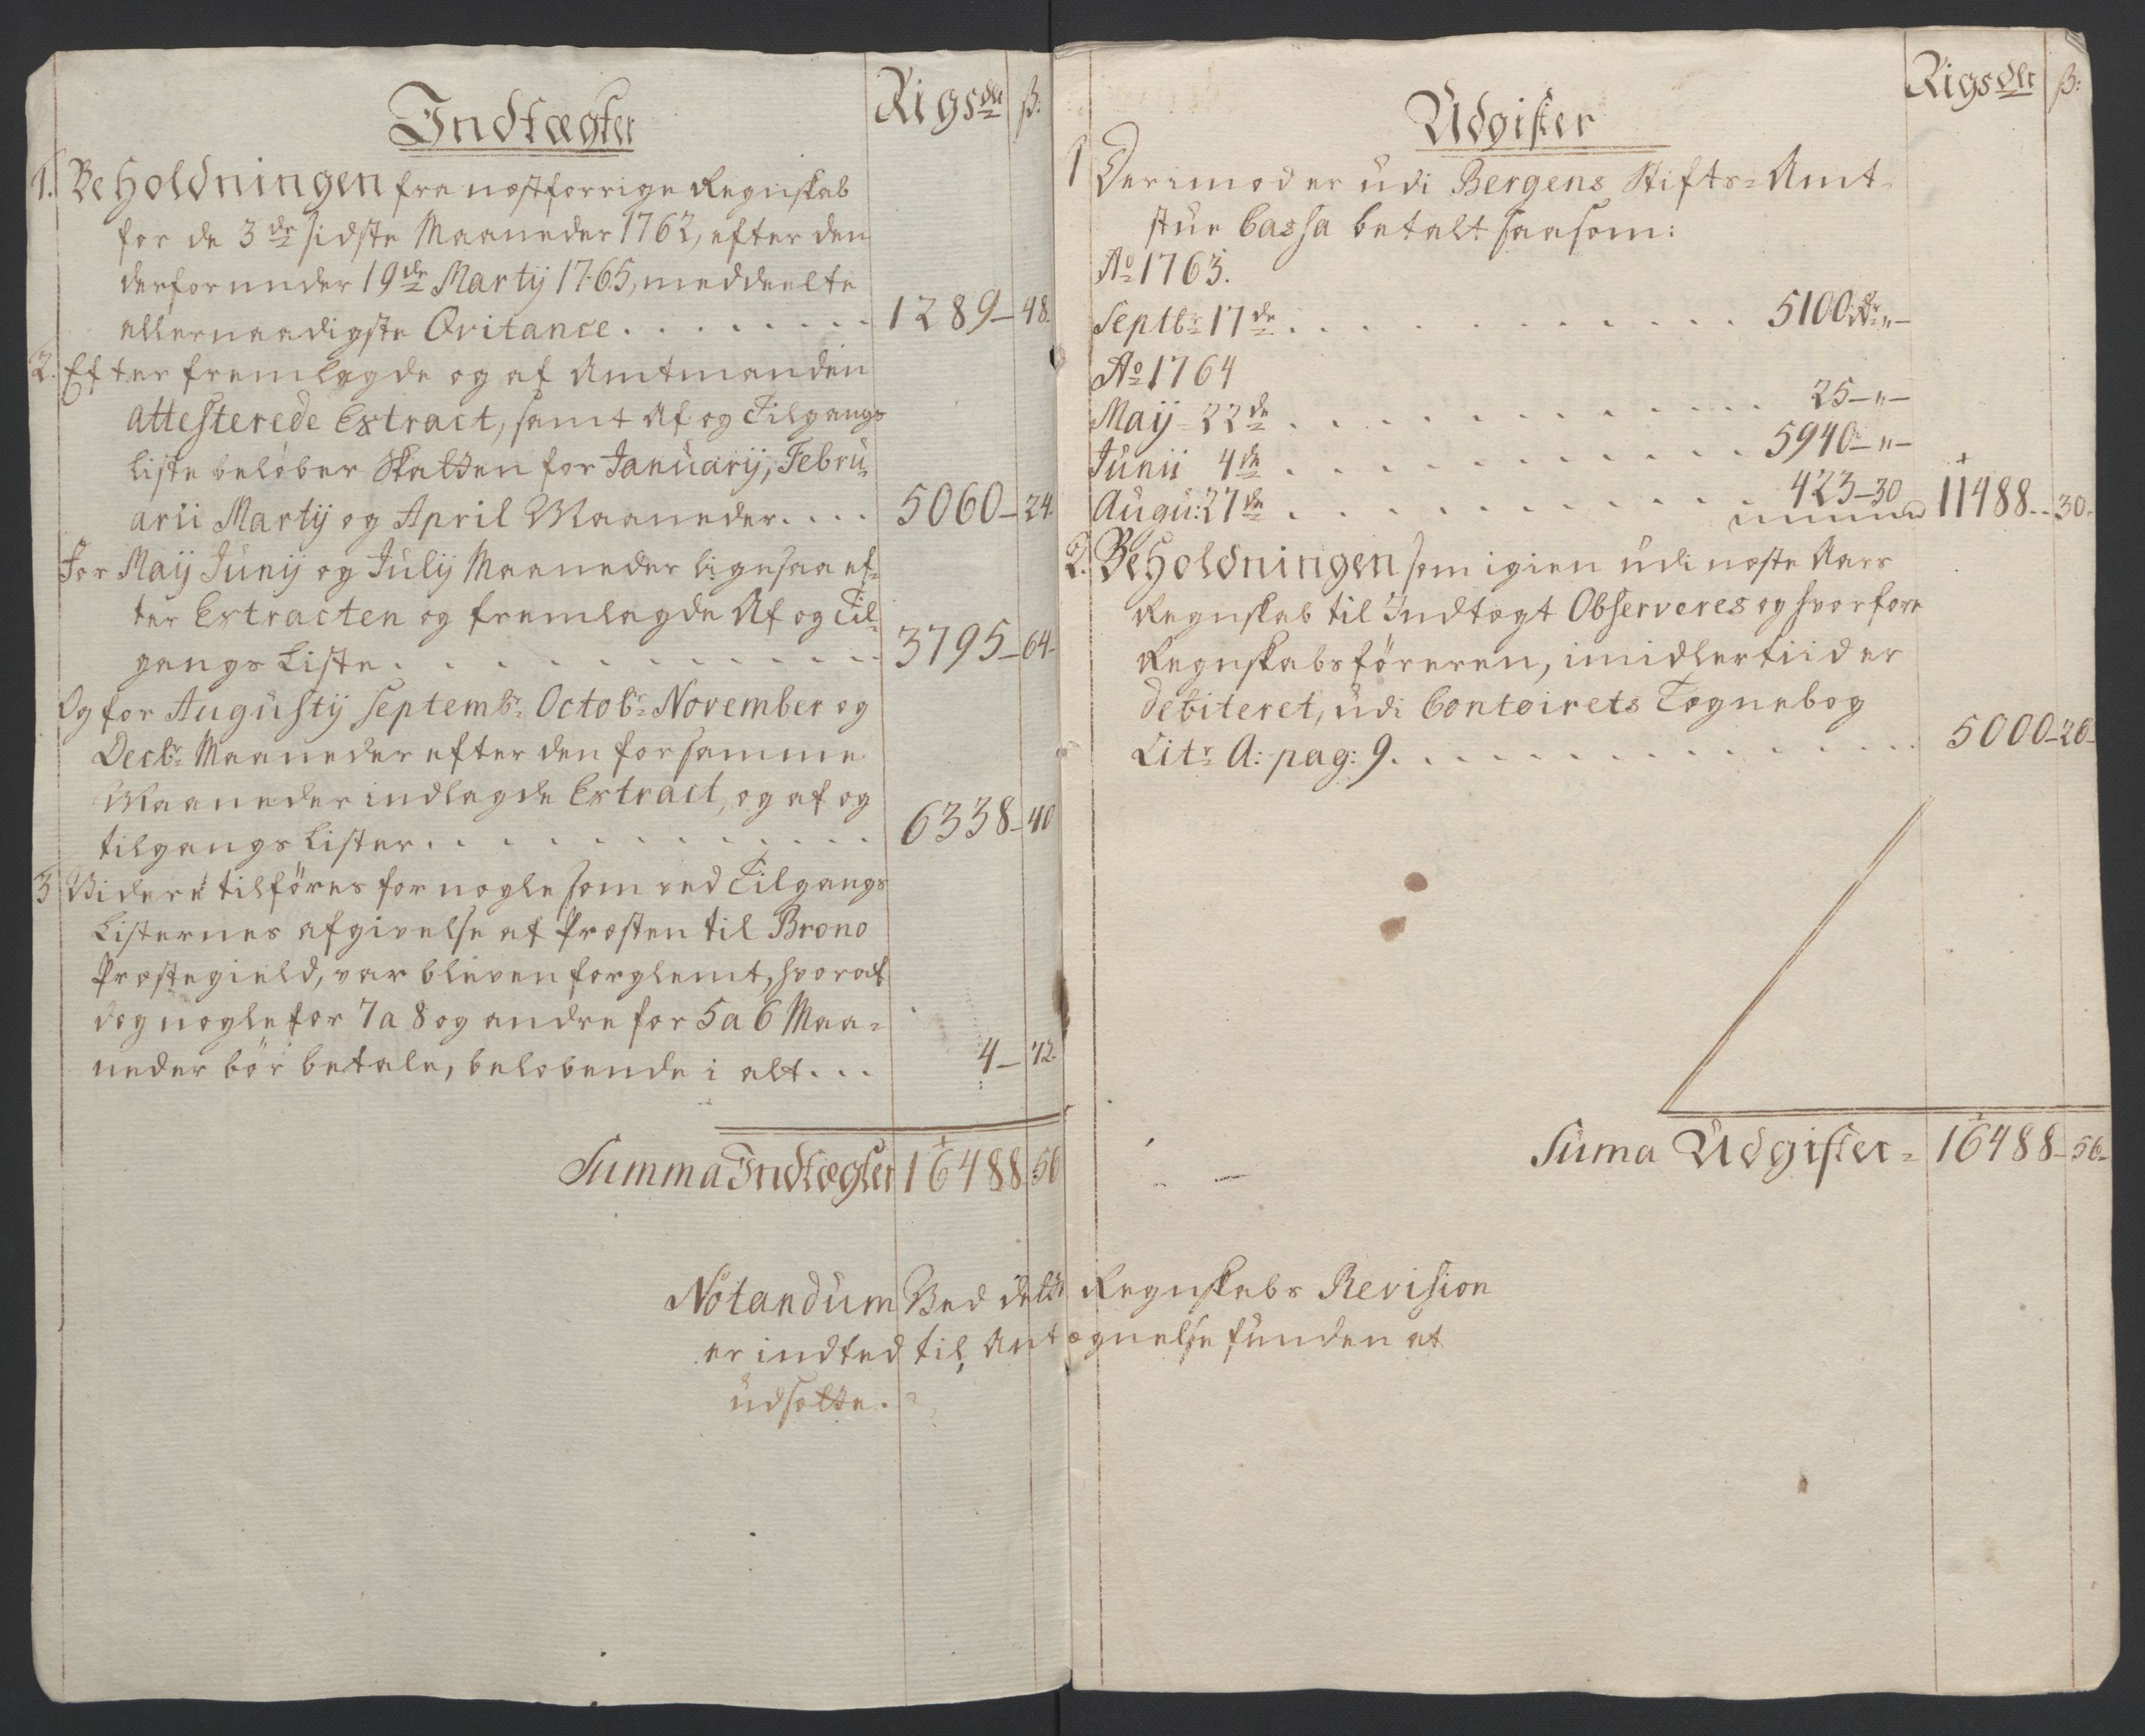 Indtægter
Rigsdlr ß:
1. Beholdningen fra næstforrige Regnskab
for de 3de sidste Maaneder 1762, efter den
derfor under 19de Martij 1765, meddeelte
allernaadigste Qvitance . . . . . . . . 1289 - 48.
2. Efter fremlagde og af Amtmanden
attesterede Extract, samt Af og Tilgangs
Liste beløber Skatten for Januarij, Febru
arii Martij og April Maaneder. . . . 5060 - 24.
For Maij Junij og Julij Maaneder ligesaa ef-
ter Extracten og fremlagde Af og Til-
gangs Liste . . . . . . . . . . 3795 - 64.
Og for Augustij Septembr: Octobr: November og
Decbr: Maaneder efter den for samme
Maaneder indlagde Extract, og af og
tilgangs Lister. . . . . . . . . . 6338 - 40
3 Videre tilföres for nogle som ved Tilgangs
Listernes afgivelse af Præsten til Brønø
Præstegield, var bleven forglemt, hvoraf
dog nogle for 7 a 8 og andre for 5 a 6 Maa-
neder bör betale, beløbende i alt . . . 4 - 72.
Summa Indtægter 16488 56
Udgifter
Rigsdlr ß:
1 Derimod er udi Bergens Stifts-Amt-
stue Cassa betalt saasom:
Ao 1763.
Septbr 17de . . . . . . . . . . . . 5100 rdr „ -
Ao 1764
Maij 22de . . . . . . . . . . . . 25 - „ -
Junii 4de . . . . . . . . . . . . 5940 - „ -
Augu: 27de . . . . . . . . . . . 423 - 30 11488 - 30.
2. Beholdningen som igien udi næste Aars
Regnskab til Indtægt Observeres og hvorfore
Regnskabsföreren, imidlertiid er
debiteret, udi Contoirets Tegnebog
Litr A: pag: 9. . . . . . . . . . . . . 5000 - 26 -
Suma Udgifter = 16488 - 56 -
Notandum Ved dette Regnskabs Revision
er indted til Antegnelse funden at
udsætte.